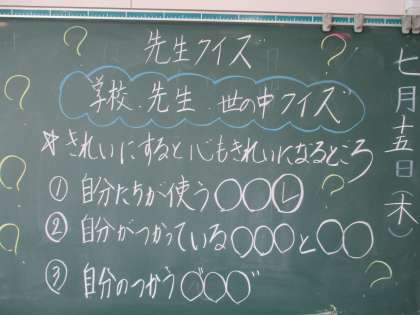 先生クイズ
学校．先生．世の中クイズ
☆きれいにすると心もきれいになるところ
① 自分たちが使う○○○レ
② 自分がつかっている○○○と○○
③ 自分のつかう○゛○○゛
七月十五日(木)
？
？
？
？
？
？
？
？